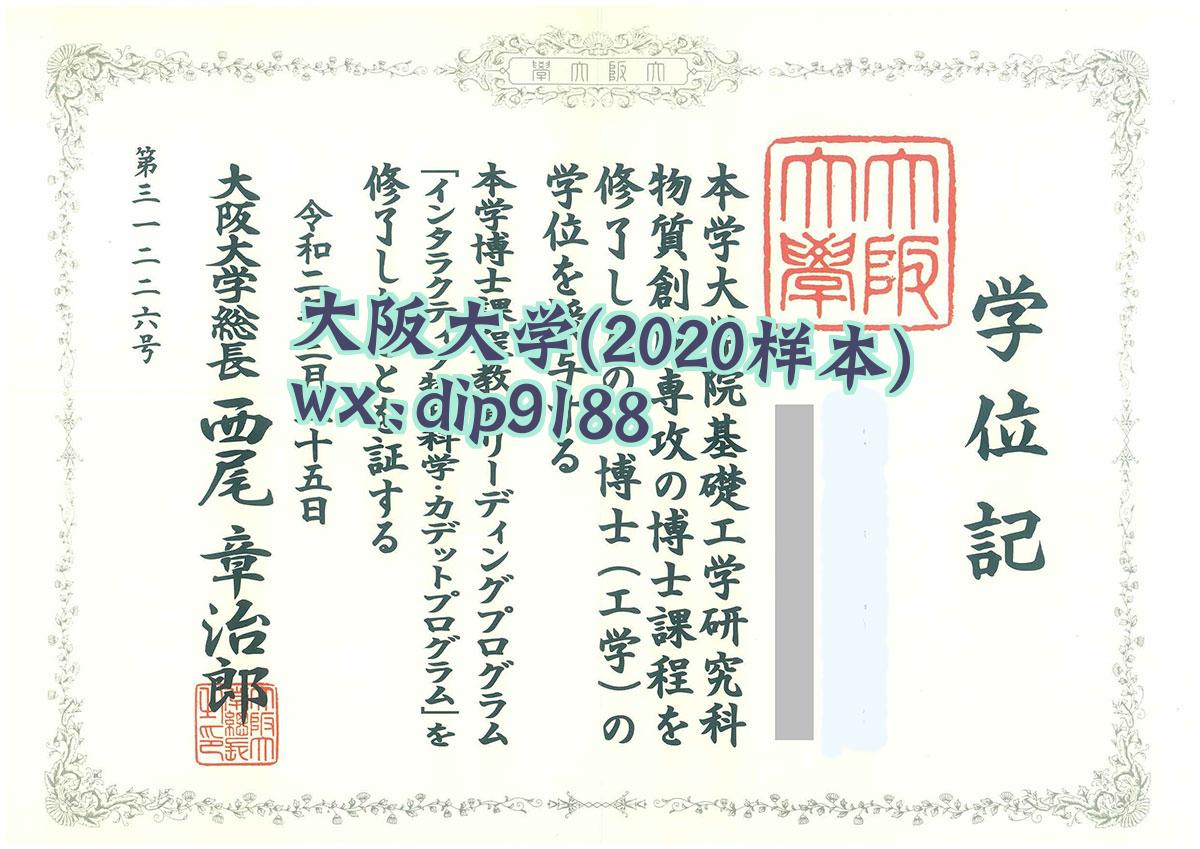 大阪大學
学位記
大阪大學
本学大院基礎工学研究科
物質創専攻の博士課程を
修了しの博士(工学)の
学位を授与する
本学博士課程教リーディングプログラム
「インタラクティブ科学・カデットプログラム」を
修了しとを証する
令和二十五日
大阪大学総長 西尾 章治郎
第三一二二六号
大阪大学(2020样本)
wx:dip9188